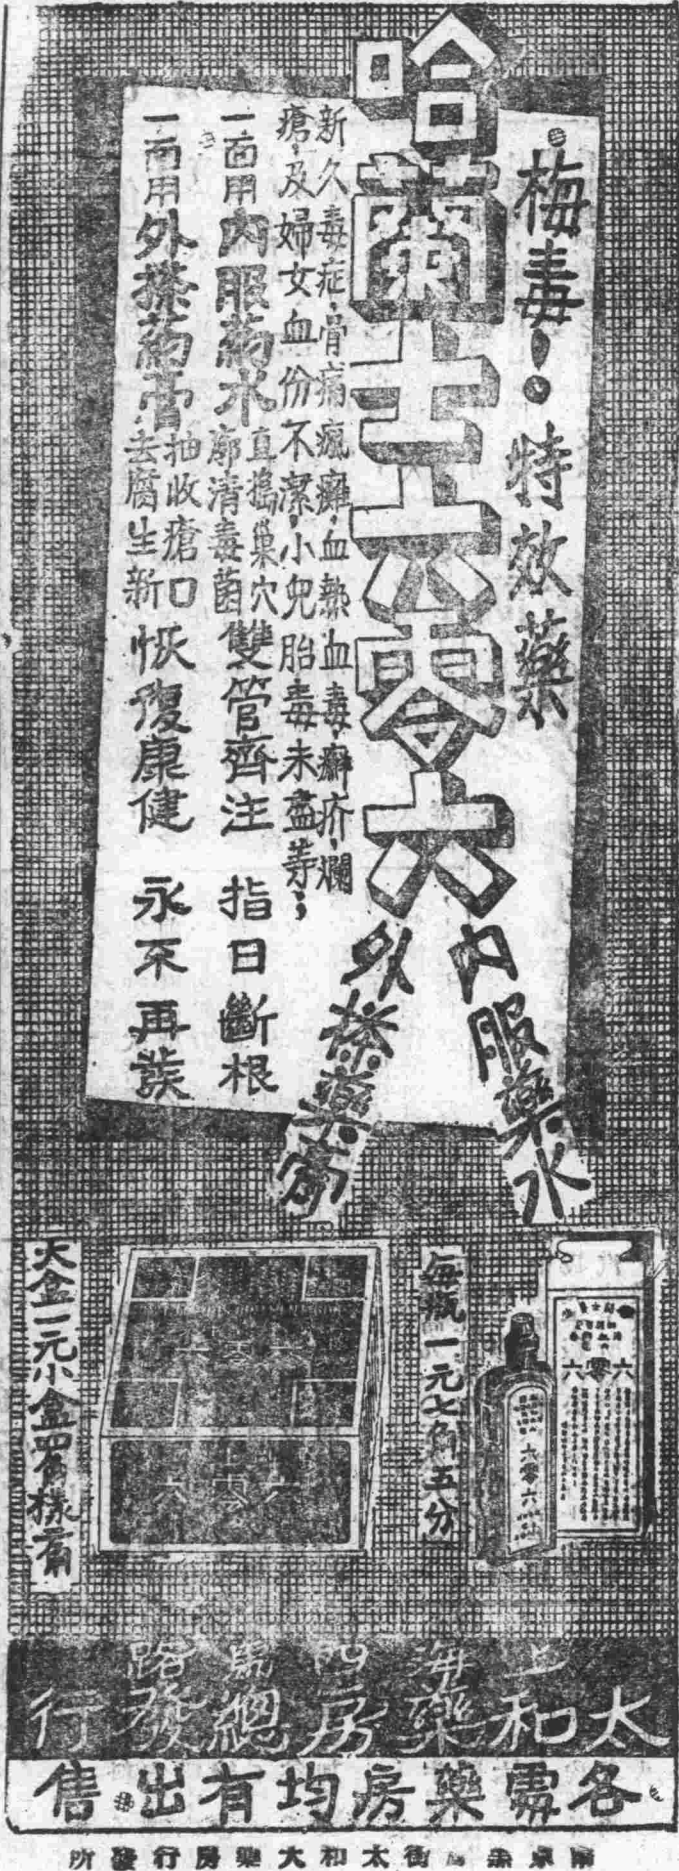 梅毒！特效藥
哈蘭士六零六
內服藥水
外搽藥膏
新久毒症，骨痛瘋癱，血熱血毒，癬疥，爛
瘡，及婦女血份不潔，小兒胎毒未盡等；
一面用內服藥水直搗巢穴廓清毒菌雙管齊注 指日斷根
一面用外搽藥膏抽收瘡口去腐生新恢復康健 永不再發
六零六
六零六
每瓶一元七角五分
六零六
六零六
大盒二元小盒四角
上海四馬路
太和藥房總發行
各處藥房均有出售
街太和大藥房行發所